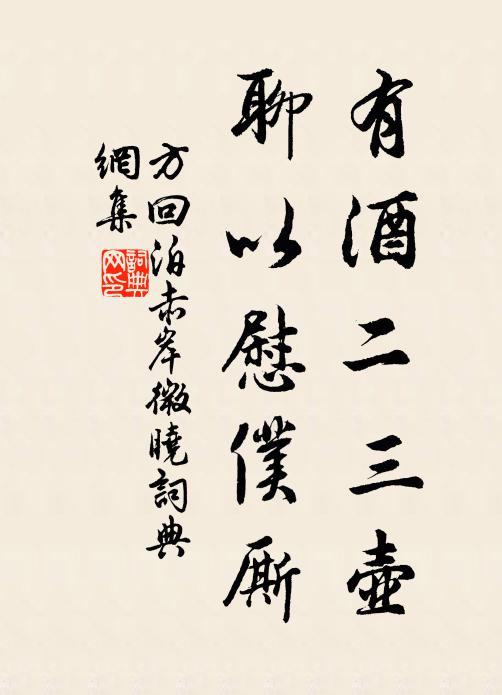 有酒二三壺
聊以慰僕厮
方回泊赤岸微曉詞典
網集
詞典网印